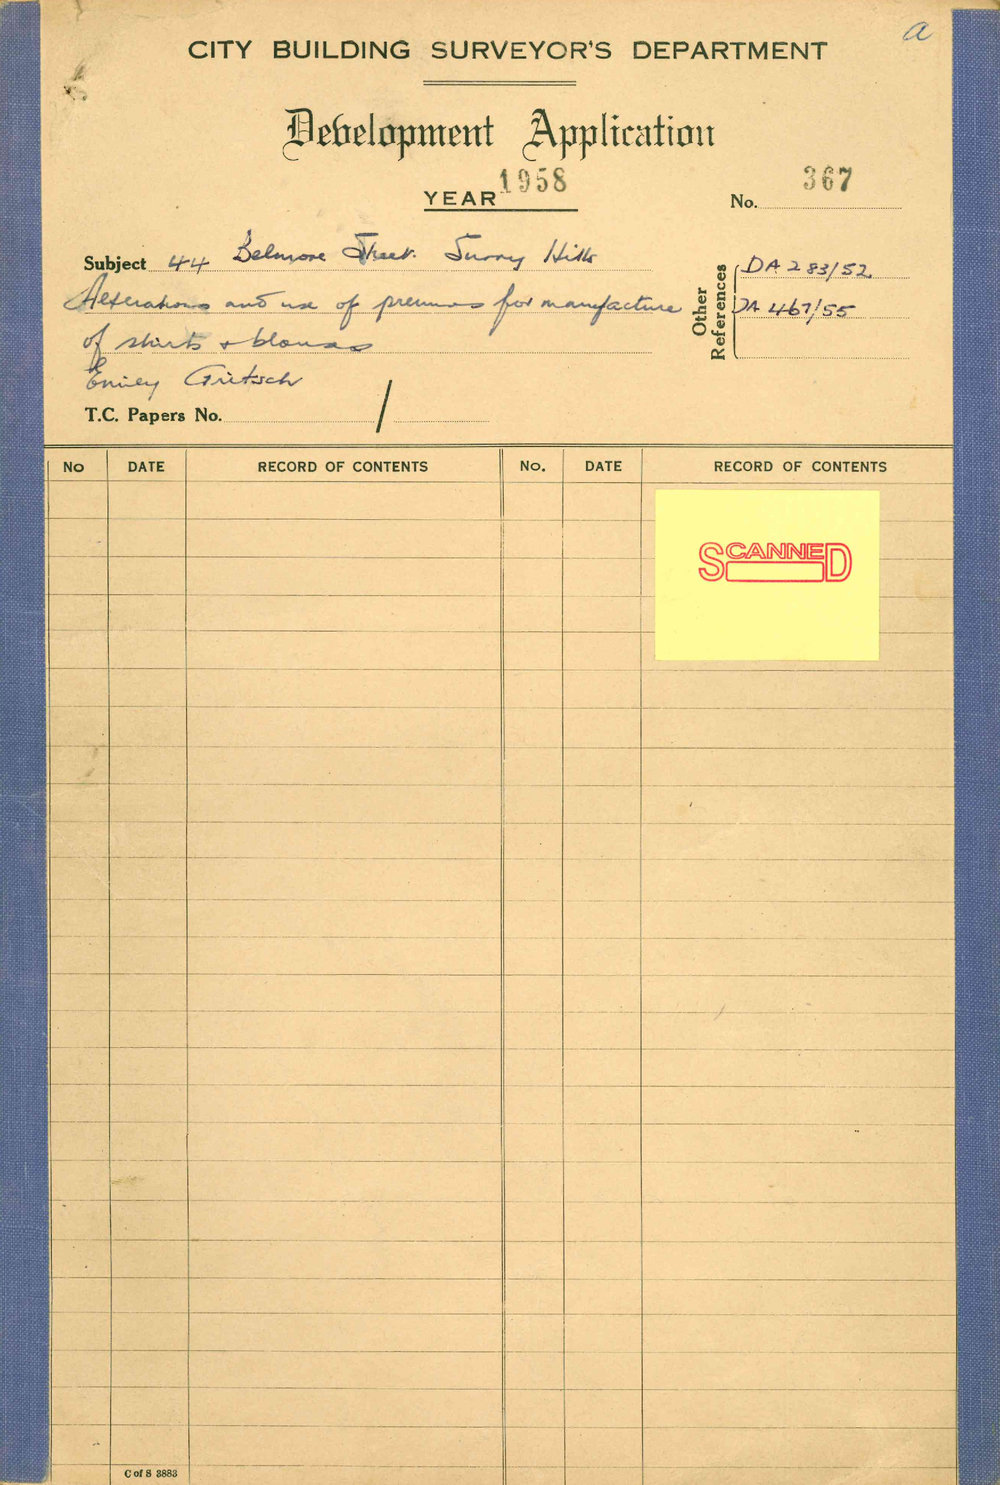 a
CITY BUILDING SURVEYOR'S DEPARTMENT
Development Application
YEAR 1958
No. 367
Subject 44 Belmore Street. Surry Hills
Alterations and use of premises for manufacture
of shirts + blouses
Emiley Gritsch
T.C. Papers No. /
Other References
DA 283/52
DA 467/55
No DATE RECORD OF CONTENTS No. DATE RECORD OF CONTENTS
SCANNED
C of S 3883